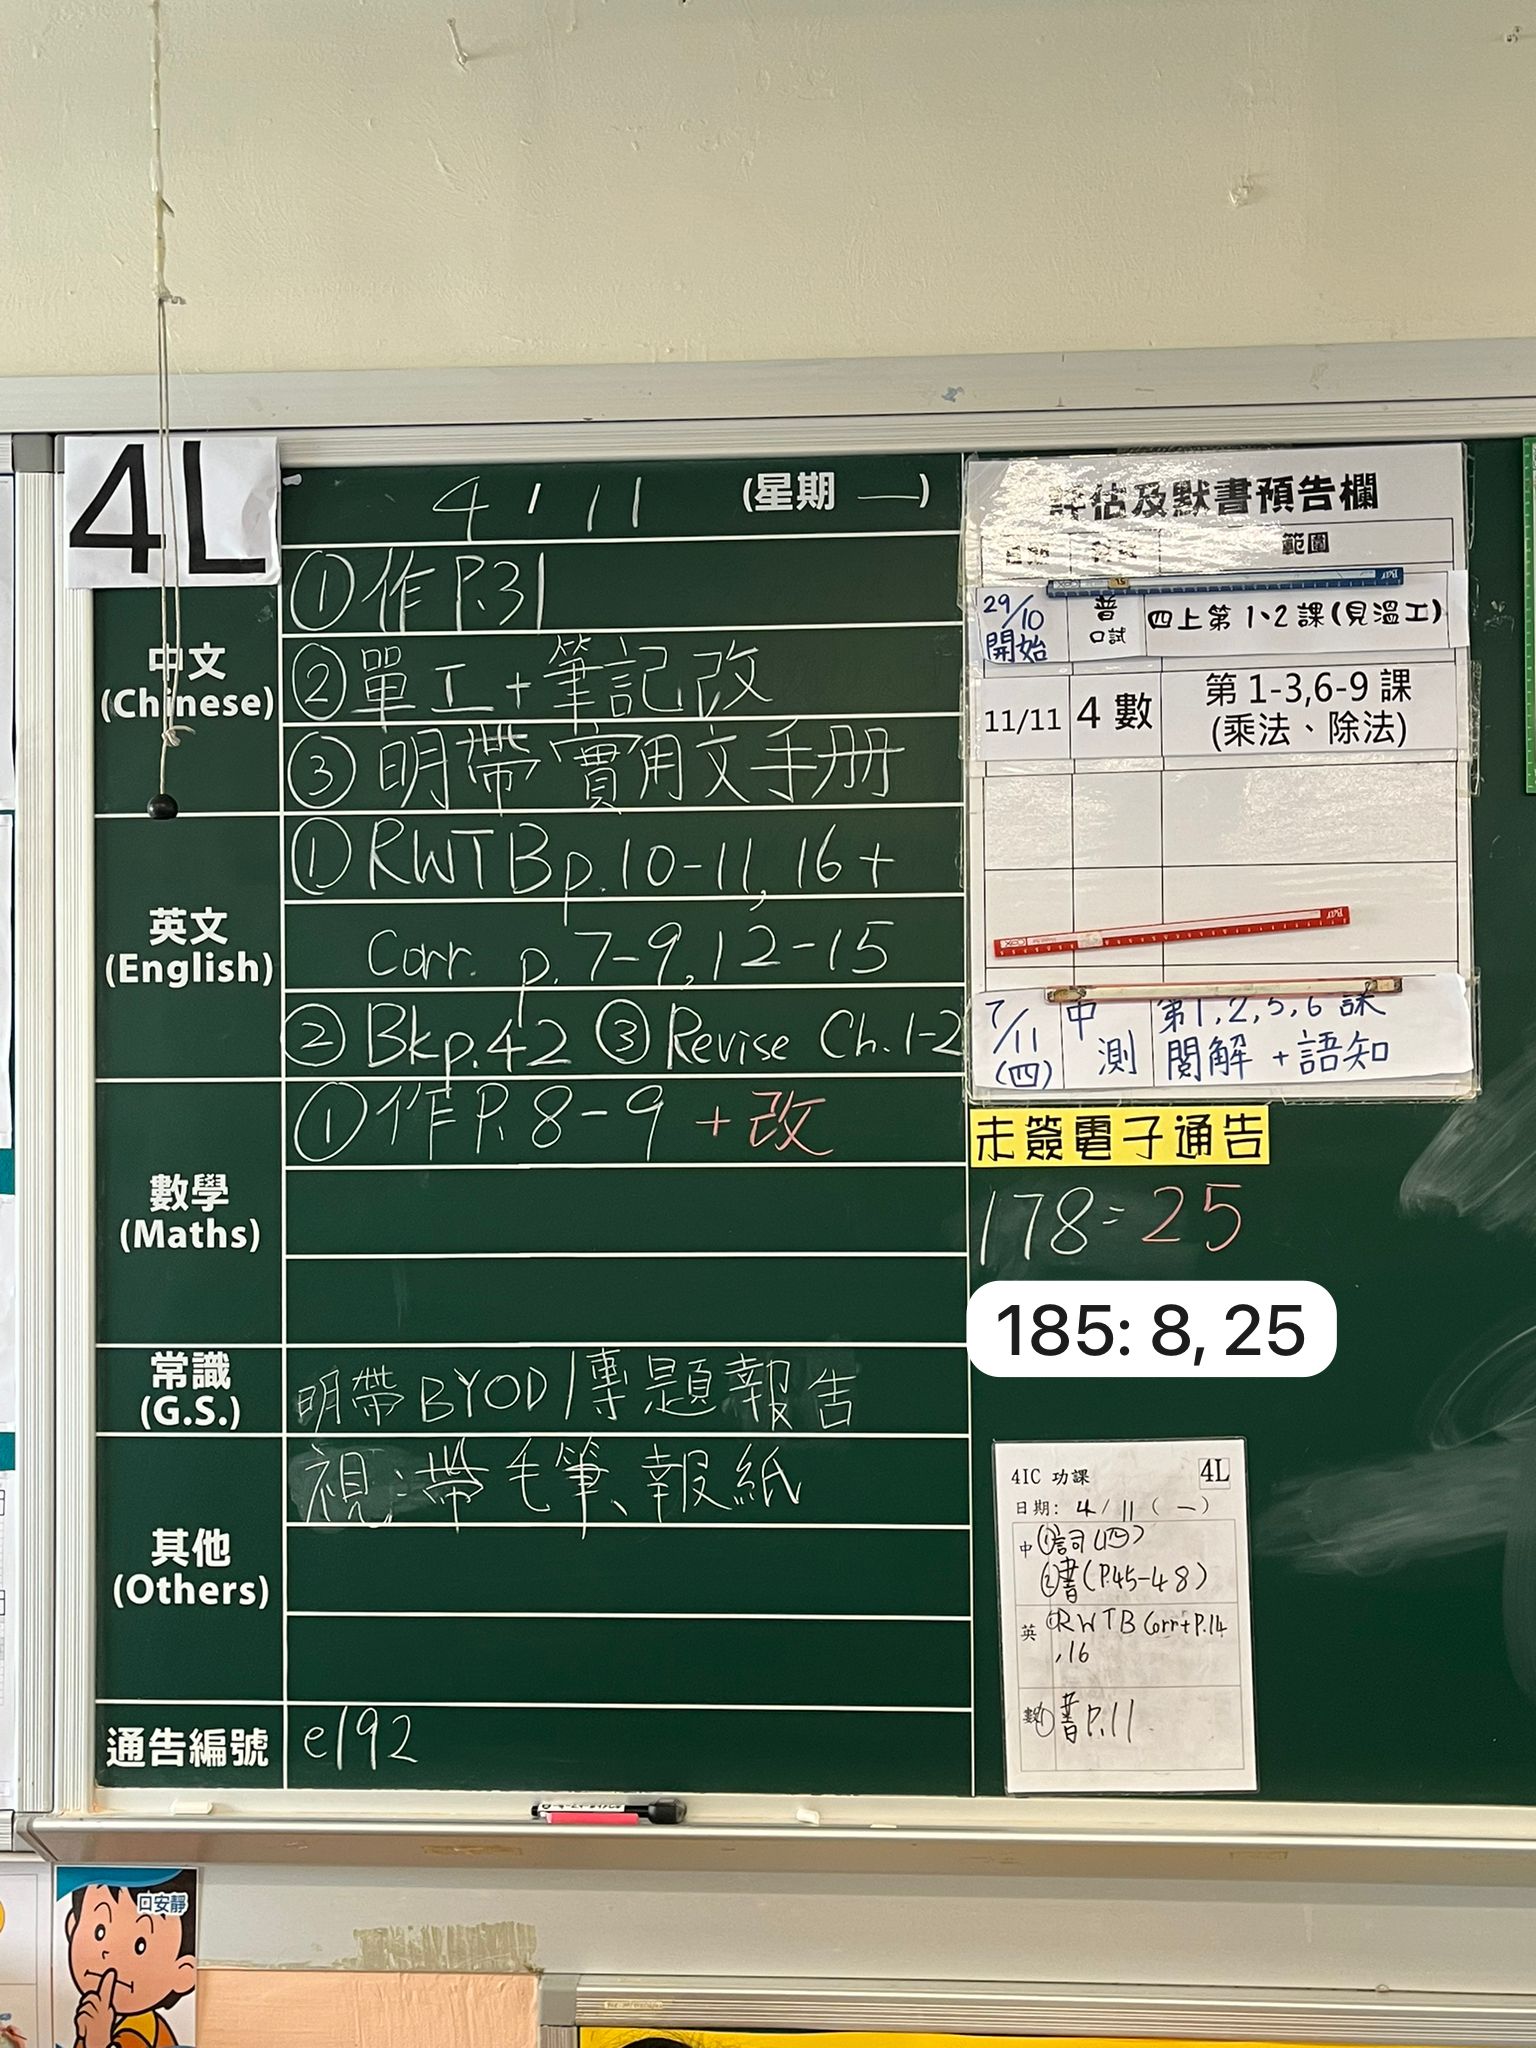 4L
4 / 11 (星期 一)
中文
(Chinese)
① 作 P.31
② 單工 + 筆記改
③ 明帶實用文手册
英文
(English)
① RWTB p.10-11, 16 +
Corr. p. 7-9, 12-15
② Bk p.42 ③ Revise Ch.1-2
數學
(Maths)
① 作 P.8-9 + 改
常識
(G.S.)
明帶 BYOD / 專題報告
其他
(Others)
視:帶毛筆、報紙
通告編號
e192
評估及默書預告欄
範圍
29/10
開始
普
口試
四上第1、2課(見溫工)
11/11
4 數
第 1-3,6-9 課
(乘法、除法)
7/11
(四)
中
測
第1,2,5,6 課
閱解 + 語知
未簽電子通告
178: 25
185: 8, 25
4IC 功課 4L
日期: 4 / 11 ( 一 )
中 ①詞(四)
②書(P.45-48)
英 ①RWTB Corr+P.14
,16
數① 書P.11
回安靜